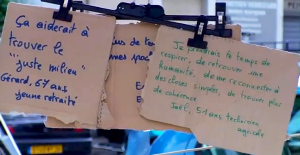 Ça aiderait à
trouver le
"juste milieu"
Gérard, 67 ans
jeune retraité
us de te
mes spac
Je prendrais le temps de
respirer, de retrouver une
humanité, de me reconnecter à
des choses simples, de trouver plus
de cohérence
Joël, 51 ans technicien
agricole